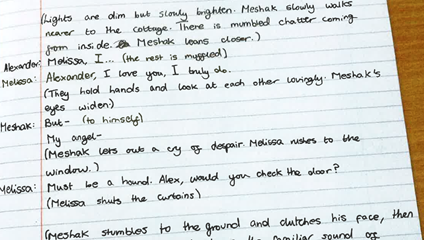 (Lights are dim but slowly brighten. Meshak slowly walks
nearer to the cottage. There is mumbled chatter coming
from inside. Meshak leans closer.)
Alexander: Melissa, I... (the rest is muffled)
Melissa: Alexander, I love you, I truly do.
(They hold hands and look at each other lovingly. Meshak's
eyes widen)
Meshak: But- (to himself)
My angel-
(Meshak lets out a cry of despair. Melissa rushes to the
window.)
Melissa: Must be a hound. Alex, would you check the door?
(Melissa shuts the curtains)
(Meshak stumbles to the ground and clutches his face, then
the familiar sound of